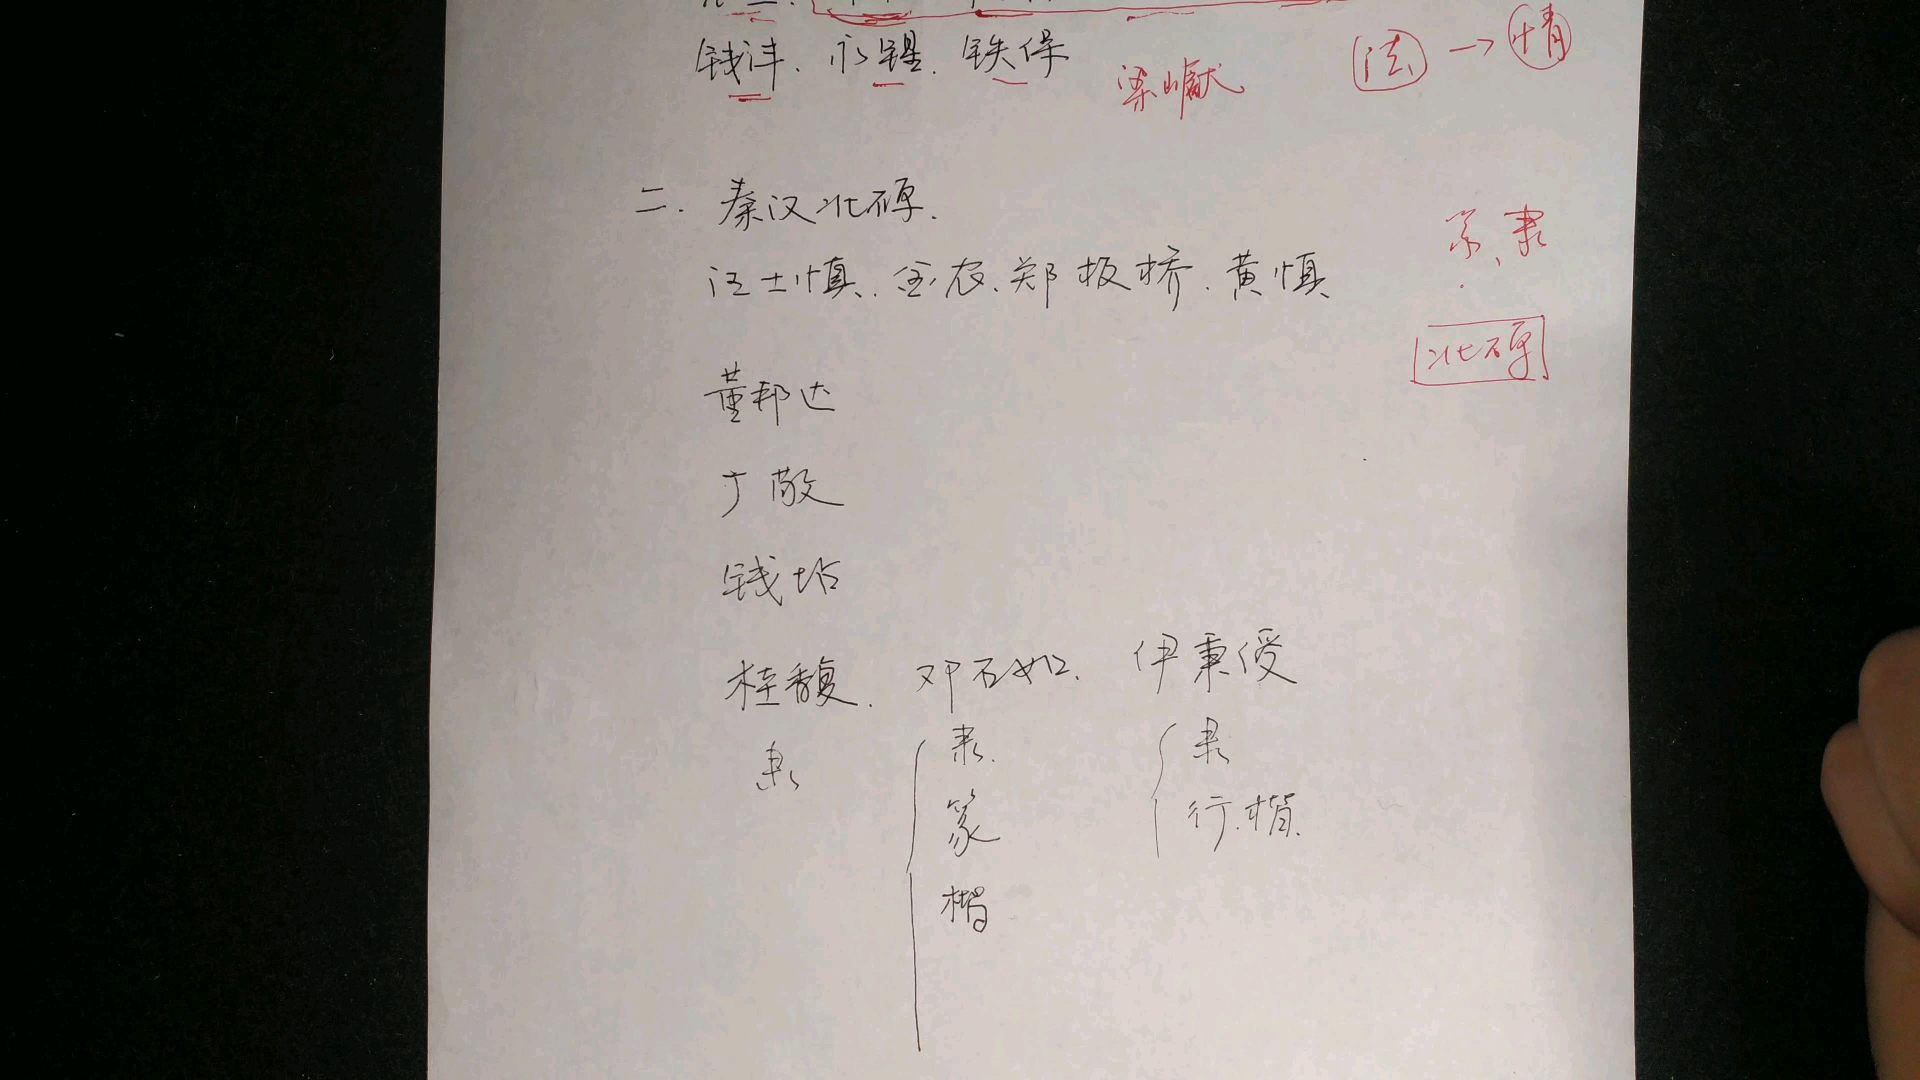 钱沣、永瑆、铁保
梁巘
法→情
二、秦汉北碑
篆、隶
汪士慎、金农、郑板桥、黄慎
北碑
董邦达
丁敬
钱坫
桂馥、邓石如、伊秉绶
隶 隶 隶
篆 行、楷
楷